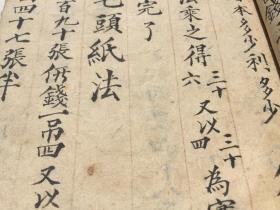 本多少利多少
法乘之得三十六又以三十四為實
完了
毛頭紙法
百九十張价錢一吊四又以
四十七張半